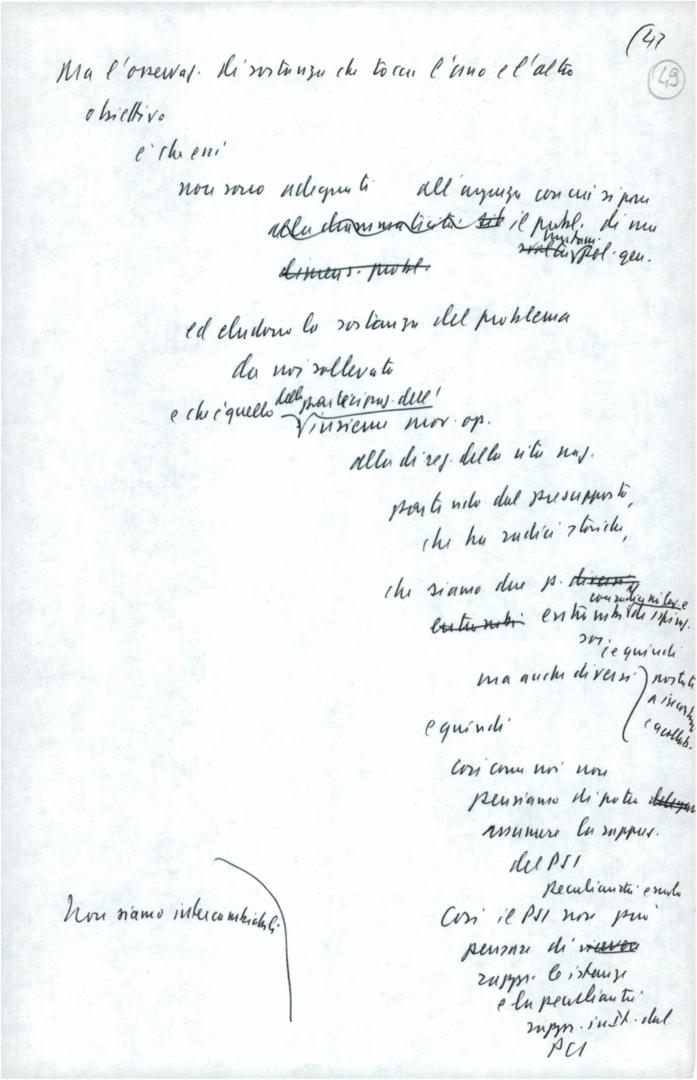 (47
49
Ma l'osservaz. di sostanza che tocca l'uno e l'altro
obiettivo
è che essi
non sono adeguati all'urgenza con cui si pone
alla drammaticità il probl. di una
pol. gen.
dimens. probl.
ed eludono la sostanza del problema
da noi sollevato
e che è quello della partecipaz. dell'
insieme mov. op.
alla direz. della vita naz.
partendo dal presupposto,
che ha radici storiche,
che siamo due p. diversi
entrambi entrambi di ispiraz.
soc.
e quindi
ma anche diversi portati
e quindi
così come noi non
pensiamo di poter
assumere la rappres.
del PSI
peculiarità e ruolo
Non siamo intercambiabili.
Così il PSI non può
pensare di
rappr. le istanze
e la peculiarità
rappr. dal
PCI